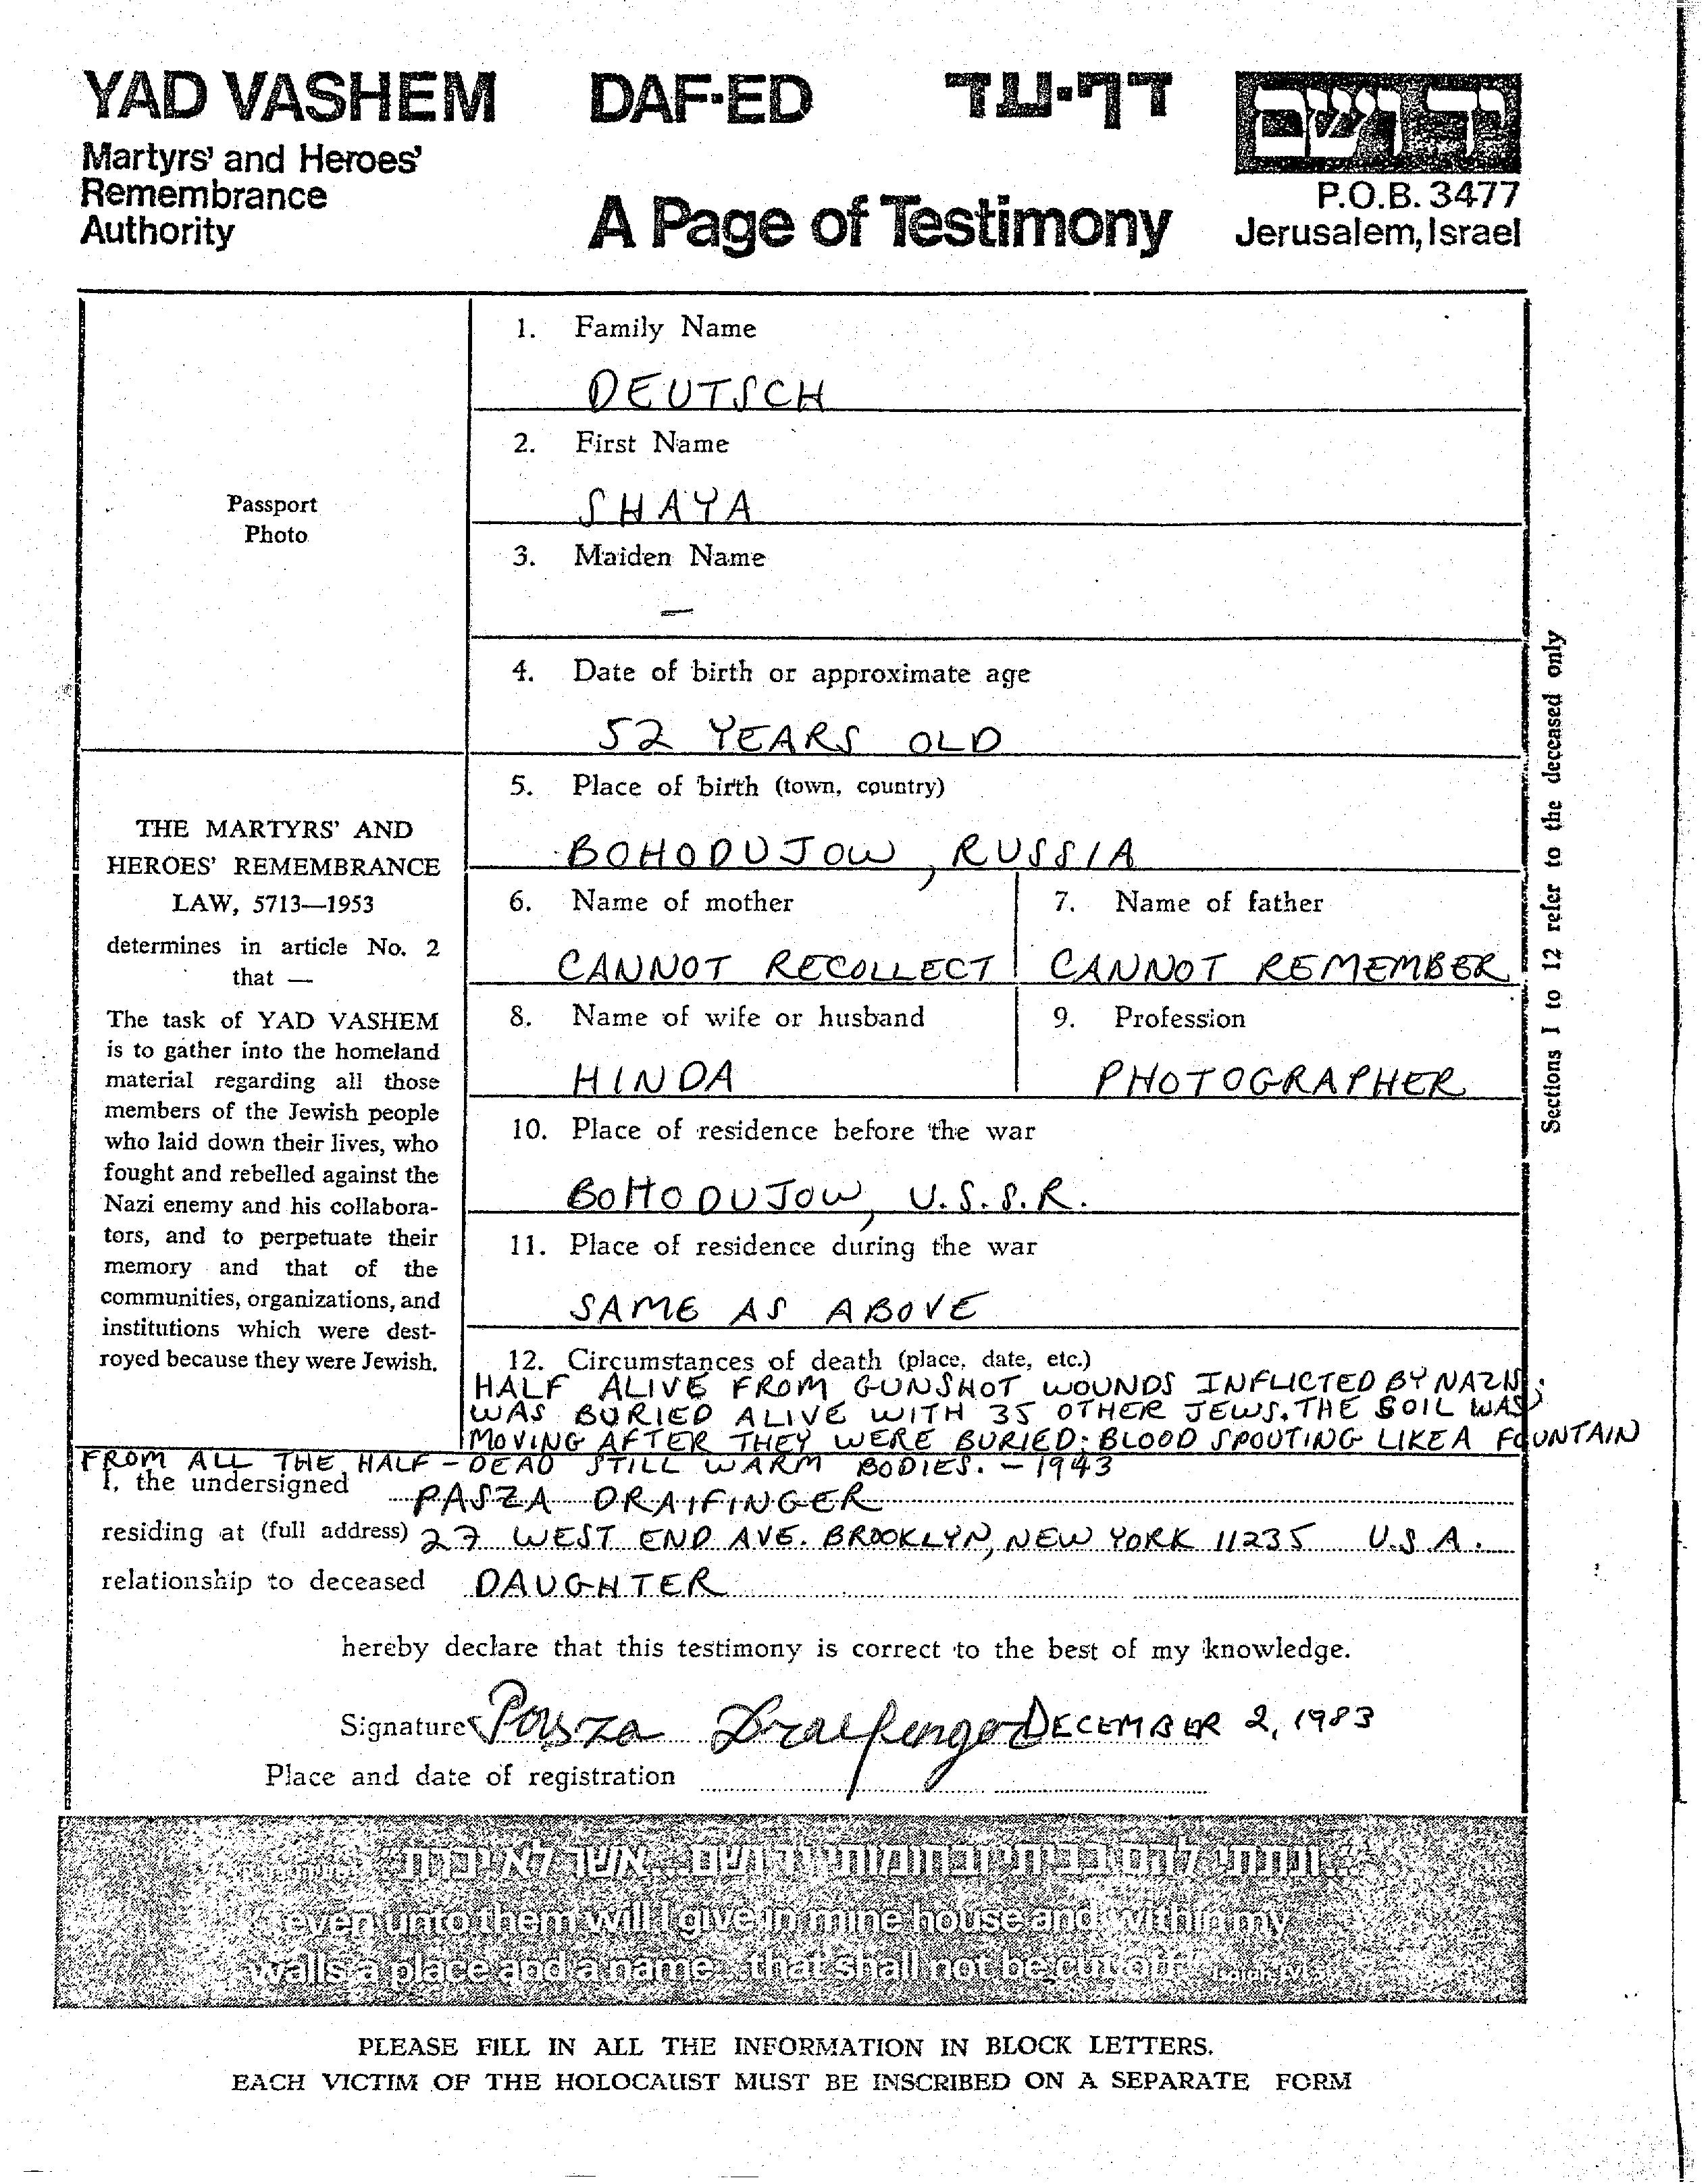 YAD VASHEM DAF-ED דף-עד ידושם
Martyrs' and Heroes'
Remembrance
Authority
A Page of Testimony
P.O.B. 3477
Jerusalem, Israel
Passport
Photo
1. Family Name
DEUTSCH
2. First Name
SHAYA
3. Maiden Name
—
4. Date of birth or approximate age
52 YEARS OLD
5. Place of birth (town, country)
BOHODUJOW, RUSSIA
6. Name of mother
CANNOT RECOLLECT
7. Name of father
CANNOT REMEMBER
8. Name of wife or husband
HINDA
9. Profession
PHOTOGRAPHER
10. Place of residence before the war
BOHODUJOW, U.S.S.R.
11. Place of residence during the war
SAME AS ABOVE
12. Circumstances of death (place, date, etc.)
HALF ALIVE FROM GUNSHOT WOUNDS INFLICTED BY NAZIS;
WAS BURIED ALIVE WITH 35 OTHER JEWS. THE SOIL WAS
MOVING AFTER THEY WERE BURIED; BLOOD SPOUTING LIKE A FOUNTAIN
FROM ALL THE HALF-DEAD STILL WARM BODIES. - 1943
Sections 1 to 12 refer to the deceased only
THE MARTYRS' AND
HEROES' REMEMBRANCE
LAW, 5713—1953
determines in article No. 2
that —
The task of YAD VASHEM
is to gather into the homeland
material regarding all those
members of the Jewish people
who laid down their lives, who
fought and rebelled against the
Nazi enemy and his collabora-
tors, and to perpetuate their
memory and that of the
communities, organizations, and
institutions which were dest-
royed because they were Jewish.
I, the undersigned PASZA DRAIFINGER
residing at (full address) 27 WEST END AVE. BROOKLYN, NEW YORK 11235 U.S.A.
relationship to deceased DAUGHTER
hereby declare that this testimony is correct to the best of my knowledge.
Signature Pasza Draifinger DECEMBER 2, 1983
Place and date of registration
"...ונתתי להם בביתי ובחומותי יד ושם... אשר לא יכרת"
"...even unto them will I give in mine house and within my
walls a place and a name...that shall not be cut off" Isaiah
PLEASE FILL IN ALL THE INFORMATION IN BLOCK LETTERS.
EACH VICTIM OF THE HOLOCAUST MUST BE INSCRIBED ON A SEPARATE FORM